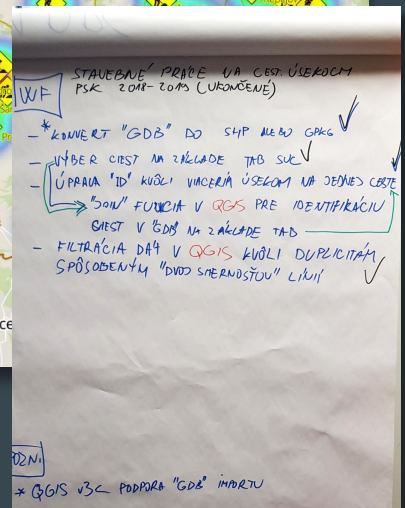 STAVEBNÉ PRÁCE NA CEST. ÚSEKOCH
PSK 2018-2019 (UKONČENÉ)
WF
- *KONVERT "GDB" DO SHP ALEBO GPKG
- VÝBER CIEST NA ZÁKLADE TAB SUC
- ÚPRAVA "ID" KVÔLI VIACERÍM ÚSEKOM NA JEDNEJ CESTE
"JOIN" FUNKCIA V QGIS PRE IDENTIFIKÁCIU
CIEST V "GDB" NA ZÁKLADE TAB
- FILTRÁCIA DÁT V QGIS KVÔLI DUPLICITÁM
SPÔSOBENÝM "DVOJSMERNOSŤOU" LÍNIÍ
POZN.
* QGIS v3< PODPORA "GDB" IMPORTU